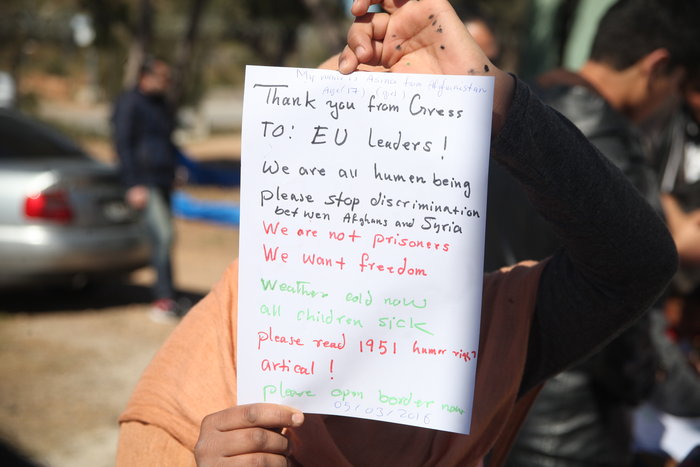 My name is Asina from Afghanistan
Age (17) (girl)
Thank you from Greess
To: EU Leaders!
We are all humen being
please stop discrimination
betwen Afghans and Syria
We are not prisoners
We want freedom
Weather cold now
all children sick
please read 1951 humer right
artical!
please open border now
05/03/2016